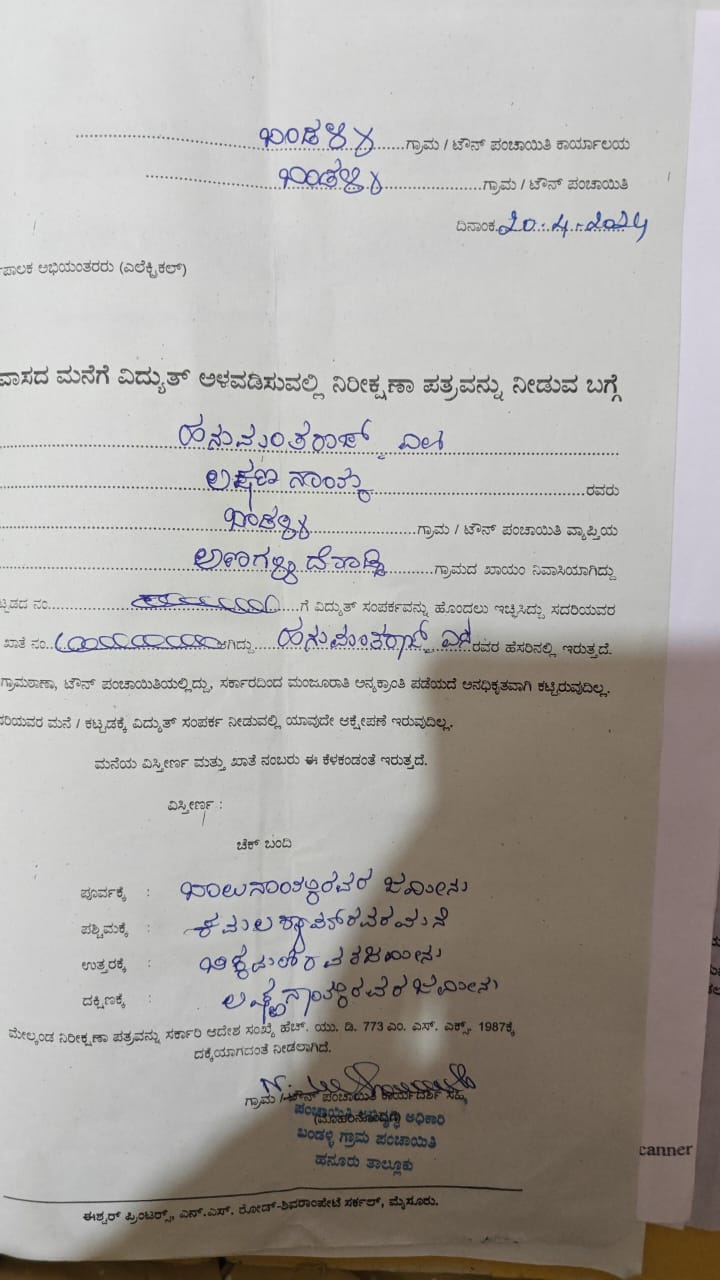 ಬಂಡಳ್ಳಿ ಗ್ರಾಮ / ಟೌನ್ ಪಂಚಾಯಿತಿ ಕಾರ್ಯಾಲಯ
ಬಂಡಳ್ಳಿ ಗ್ರಾಮ / ಟೌನ್ ಪಂಚಾಯಿತಿ
ದಿನಾಂಕ. 20.4.2024
ಪಾಲಕ ಅಭಿಯಂತರರು (ಎಲೆಕ್ಟ್ರಿಕಲ್)
ವಾಸದ ಮನೆಗೆ ವಿದ್ಯುತ್ ಅಳವಡಿಸುವಲ್ಲಿ ನಿರೀಕ್ಷಣಾ ಪತ್ರವನ್ನು ನೀಡುವ ಬಗ್ಗೆ
ಹನುಮಂತರಾಜ್
ರವರು
ಬಂಡಳ್ಳಿ ಗ್ರಾಮ / ಟೌನ್ ಪಂಚಾಯಿತಿ ವ್ಯಾಪ್ತಿಯ
ಗ್ರಾಮದ ಖಾಯಂ ನಿವಾಸಿಯಾಗಿದ್ದು
ಟ್ಟಡದ ನಂ. ಗೆ ವಿದ್ಯುತ್ ಸಂಪರ್ಕವನ್ನು ಹೊಂದಲು ಇಚ್ಛಿಸಿದ್ದು ಸದರಿಯವರ
ಖಾತೆ ನಂ. ಆಗಿದ್ದು ಹನುಮಂತರಾಜ್ ರವರ ಹೆಸರಿನಲ್ಲಿ ಇರುತ್ತದೆ.
ಗ್ರಾಮಠಾಣಾ, ಟೌನ್ ಪಂಚಾಯಿತಿಯಲ್ಲಿದ್ದು, ಸರ್ಕಾರದಿಂದ ಮಂಜೂರಾತಿ ಅನ್ಯಕ್ರಾಂತಿ ಪಡೆಯದೆ ಅನಧಿಕೃತವಾಗಿ ಕಟ್ಟಿರುವುದಿಲ್ಲ.
ರಿಯವರ ಮನೆ / ಕಟ್ಟಡಕ್ಕೆ ವಿದ್ಯುತ್ ಸಂಪರ್ಕ ನೀಡುವಲ್ಲಿ ಯಾವುದೇ ಆಕ್ಷೇಪಣೆ ಇರುವುದಿಲ್ಲ.
ಮನೆಯ ವಿಸ್ತೀರ್ಣ ಮತ್ತು ಖಾತೆ ನಂಬರು ಈ ಕೆಳಕಂಡಂತೆ ಇರುತ್ತದೆ.
ವಿಸ್ತೀರ್ಣ :
ಚೆಕ್ ಬಂದಿ
ಪೂರ್ವಕ್ಕೆ : ಜಮೀನು
ಪಶ್ಚಿಮಕ್ಕೆ :
ಉತ್ತರಕ್ಕೆ :
ದಕ್ಷಿಣಕ್ಕೆ : ಜಮೀನು
ಮೇಲ್ಕಂಡ ನಿರೀಕ್ಷಣಾ ಪತ್ರವನ್ನು ಸರ್ಕಾರಿ ಆದೇಶ ಸಂಖ್ಯೆ ಹೆಚ್. ಯು. ಡಿ. 773 ಎಂ. ಎಸ್. ಎಕ್ಸ್. 1987ಕ್ಕೆ
ದಕ್ಕೆಯಾಗದಂತೆ ನೀಡಲಾಗಿದೆ.
ಗ್ರಾಮ / ಟೌನ್ ಪಂಚಾಯಿತಿ ಕಾರ್ಯದರ್ಶಿ ಸಹಿ
ಪಂಚಾಯಿತಿ ಅಭಿವೃದ್ಧಿ ಅಧಿಕಾರಿ
ಬಂಡಳ್ಳಿ ಗ್ರಾಮ ಪಂಚಾಯಿತಿ
ಹನೂರು ತಾಲ್ಲೂಕು
canner
ಈಶ್ವರ್ ಪ್ರಿಂಟರ್ಸ್, ಎನ್.ಎಸ್. ರೋಡ್-ಶಿವರಾಂಪೇಟೆ ಸರ್ಕಲ್, ಮೈಸೂರು.